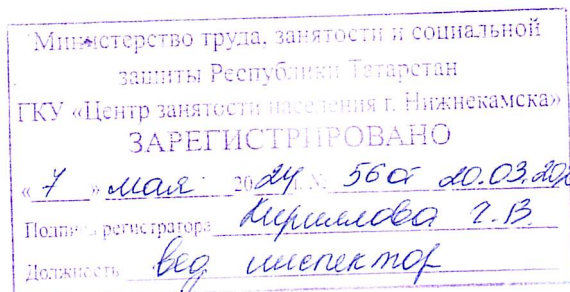 Министерство труда, занятости и социальной
защиты Республики Татарстан
ГКУ «Центр занятости населения г. Нижнекамска»
ЗАРЕГИСТРИРОВАНО
« 7 » мая 2024 г. № 56 от 20.03.202
Подпись регистратора Кириллова Г.В.
Должность вед инспектор